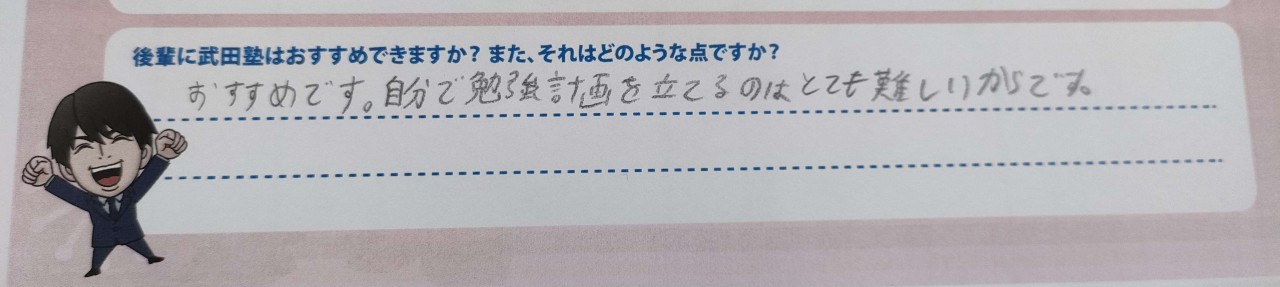 後輩に武田塾はおすすめできますか？また、それはどのような点ですか？
おすすめです。自分で勉強計画を立てるのはとても難しいからです。